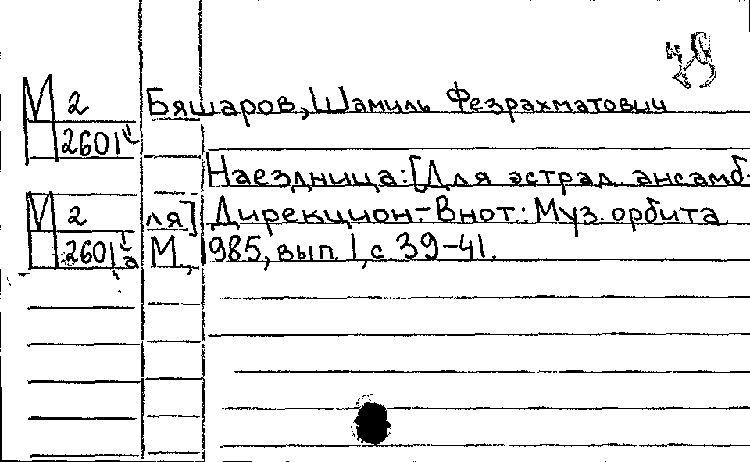 М 2 Бяшаров, Шамиль Фезрахматович
2601
Наездница: [Для эстрад. ансамб-
М 2 ля] Дирекцион.- В нот.: Муз. орбита
2601 М., 1985, вып 1, с 39-41.